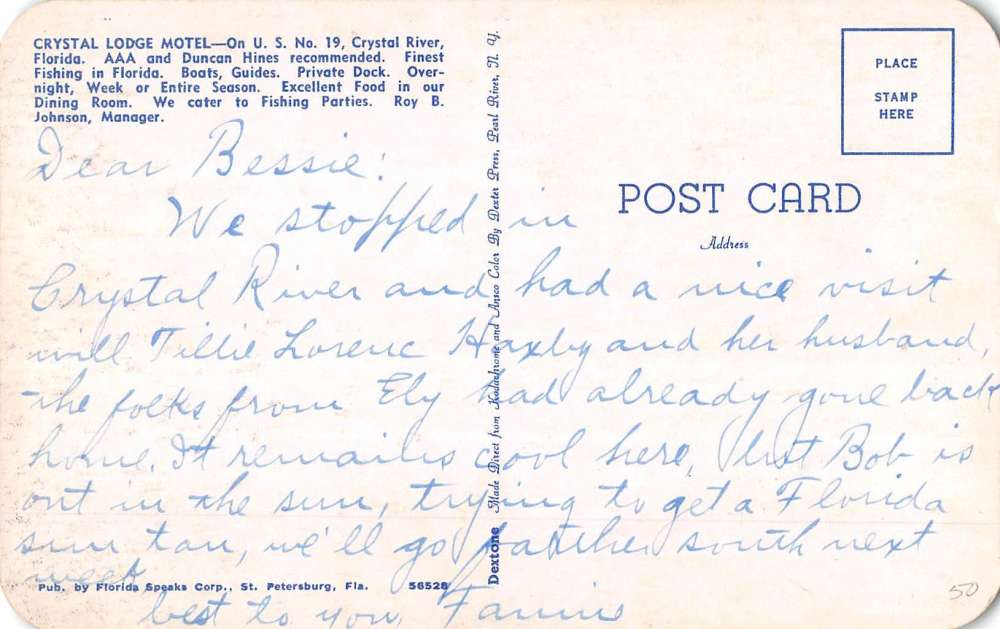 CRYSTAL LODGE MOTEL—On U. S. No. 19, Crystal River,
Florida. AAA and Duncan Hines recommended. Finest
Fishing in Florida. Boats, Guides. Private Dock. Over-
night, Week or Entire Season. Excellent Food in our
Dining Room. We cater to Fishing Parties. Roy B.
Johnson, Manager.
PLACE
STAMP
HERE
POST CARD
Address
Dear Bessie:
We stopped in
Crystal River and had a nice visit
will Tillie Lorenc Haxby and her husband,
the folks from Ely had already gone back
home. It remains cool here, but Bob is
out in the sun, trying to get a Florida
sun tan, we'll go farther south next
week
best to you, Fannie
Pub. by Florida Speaks Corp., St. Petersburg, Fla. 56528
Dextone Made Direct from Kodachrome and Ansco Color By Dexter Press, Pearl River, N. Y.
50